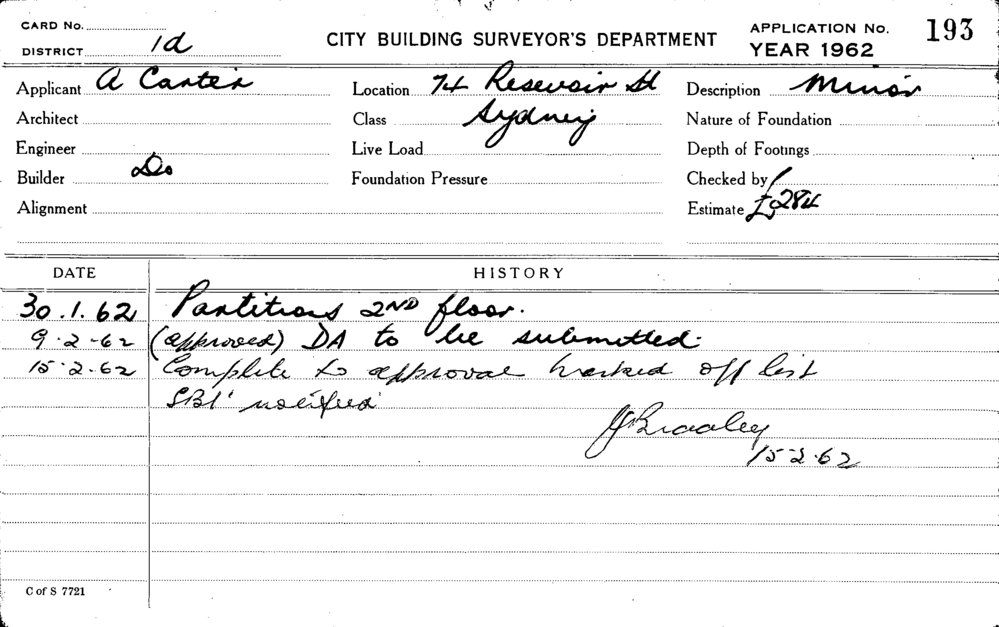 CARD No.
DISTRICT 1d
CITY BUILDING SURVEYOR'S DEPARTMENT
APPLICATION No. 193
YEAR 1962
Applicant A Carter
Location 74 Resevoir St
Description Minor
Architect
Class Sydney
Nature of Foundation
Engineer
Live Load
Depth of Footings
Builder Do
Foundation Pressure
Checked by
Alignment
Estimate £284
DATE HISTORY
30.1.62 Partitions 2ND floor.
9.2.62 (approved) DA to be submitted.
15.2.62 Complete to approval marked off list
SBI notified
JBradley
15.2.62
C of S 7721